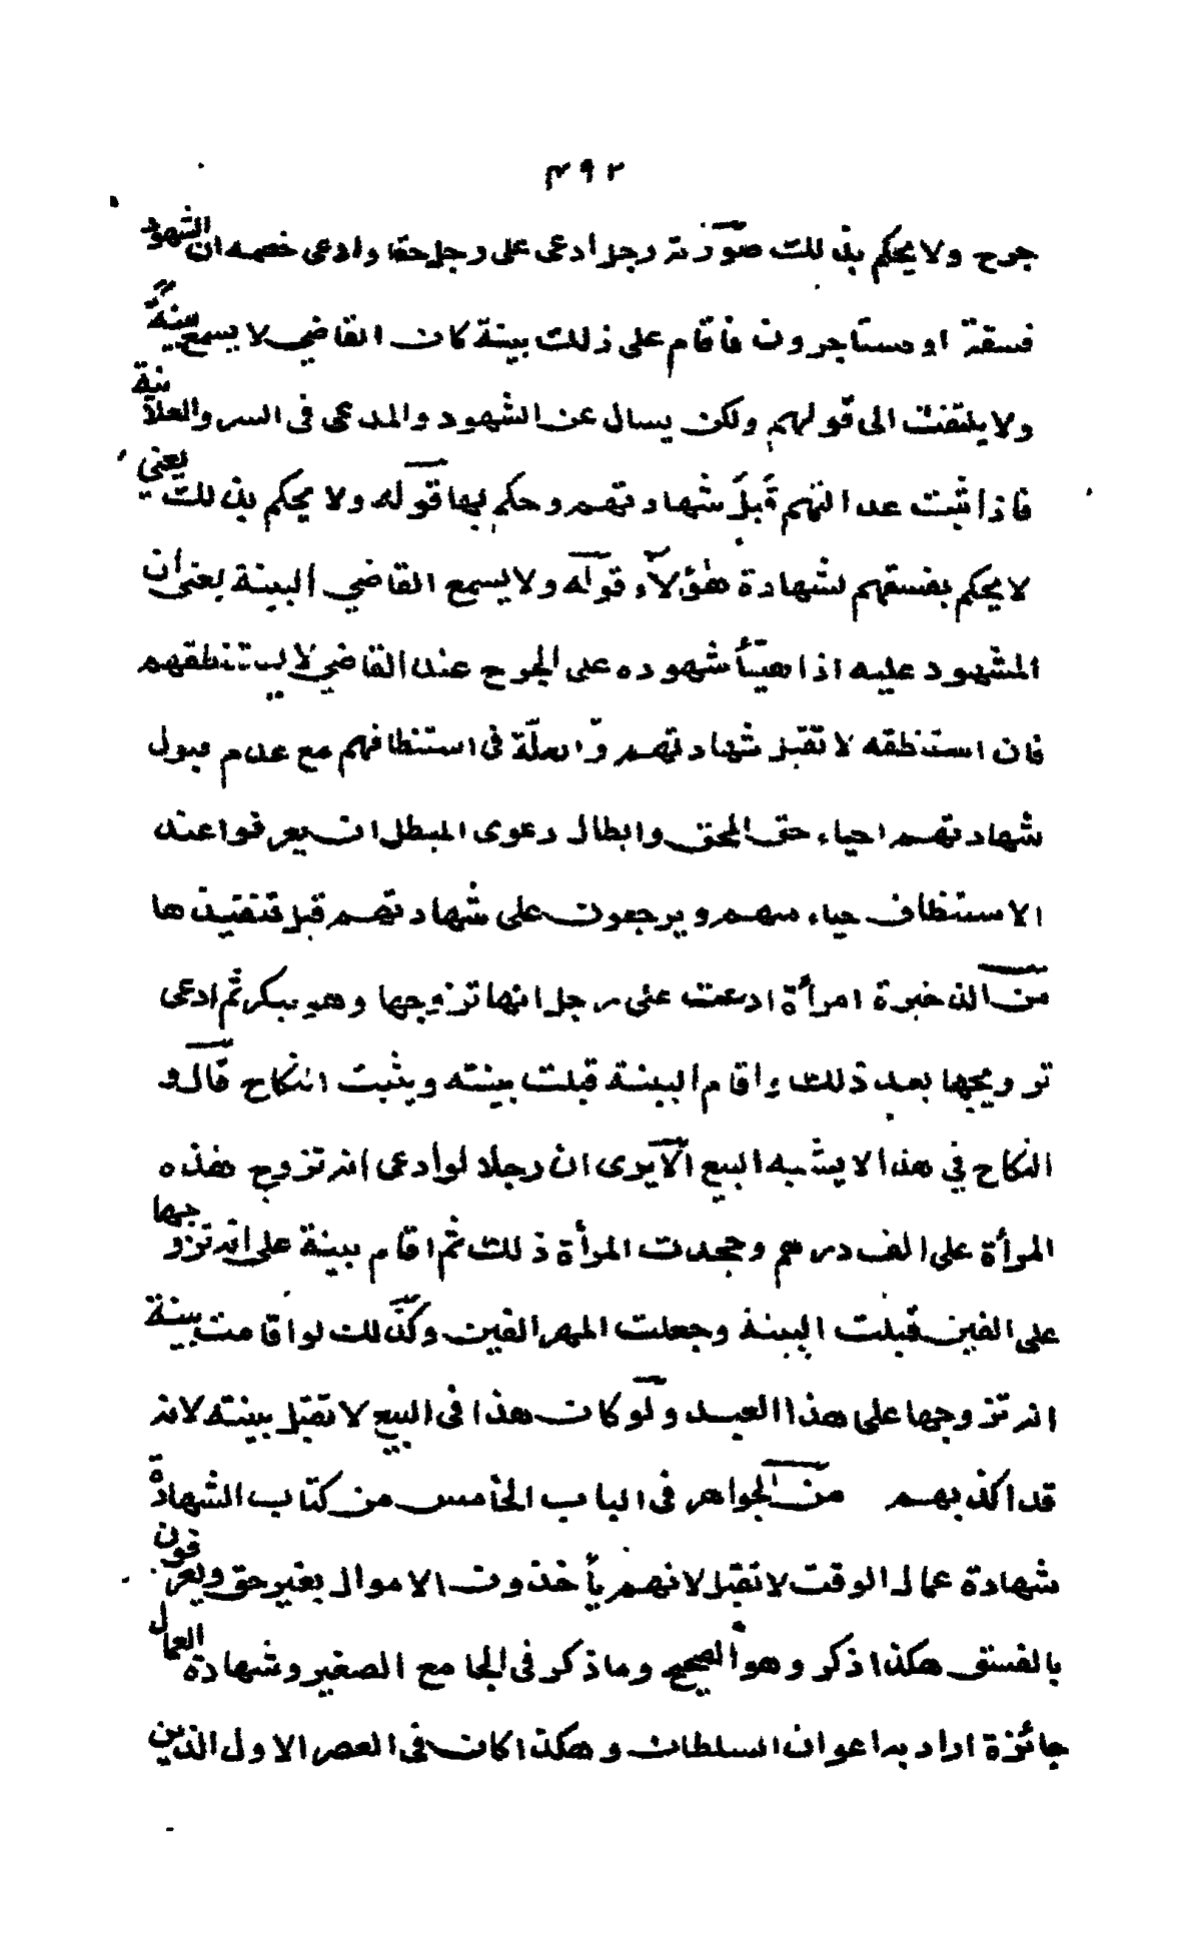 ٢٩٣
جرح ولا يحكم بذلك صورته رجل ادعى على رجل حقا وادعى خصمه ان الشهود
فسقة او مستاجرون فاقام على ذلك بينة كان القاضي لا يسمع بينة
ولا يلتفت الى قولهم ولكن يسال عن الشهود والمدعى فى السر والعلانية
فاذا ثبت عدالتهم قبل شهادتهم وحكم بها قوله ولا يحكم بذلك يعني
لا يحكم بفسقهم لشهادة هؤلاء قوله ولا يسمع القاضي البينة يعنى ان
المشهود عليه اذا هيّأ شهوده على الجرح عند القاضي لا يستنطقهم
فان استنطقه لا تقبل شهادتهم والعلة فى استنطاقهم مع عدم قبول
شهادتهم احياء حق المحق وابطال دعوى المبطل ان يعرفوا عند
الاستنطاق حياء منهم ويرجعون على شهادتهم قبل تنفيذها
من الذخيرة امرأة ادعت على رجل انها تزوجها وهو ينكر ثم ادعى
تزويجها بعد ذلك واقام البينة قبلت بينته ويثبت النكاح قال و
النكاح في هذا لا يشبه البيع الا يرى ان رجلا لو ادعى انه تزوج هذه
المرأة على الف درهم وجحدت المرأة ذلك ثم اقام بينة على انه تزوجها
على الفين قبلت البينة وجعلت المهر الفين وكذلك لو اقامت بينة
انه تزوجها على هذا العبد ولو كان هذا فى البيع لا تقبل بينته لانه
قد اكذبهم من الجواهر فى الباب الخامس من كتاب الشهادة
شهادة عمال الوقت لا تقبل لانهم يأخذون الاموال بغير حق ويعرفون
بالفسق هكذا ذكر وهو الصحيح وما ذكر فى الجامع الصغير وشهادة العمال
جائزة اراد به اعوان السلطان وهكذا كان فى العصر الاول الذين